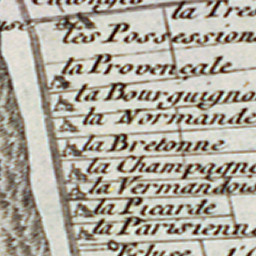 la Tres
les Possessions
la Provençale
la Bourguigno
la Normande
la Bretonne
la Champagne
la Vermandois
la Picarde
la Parisienne
l'Ecluse